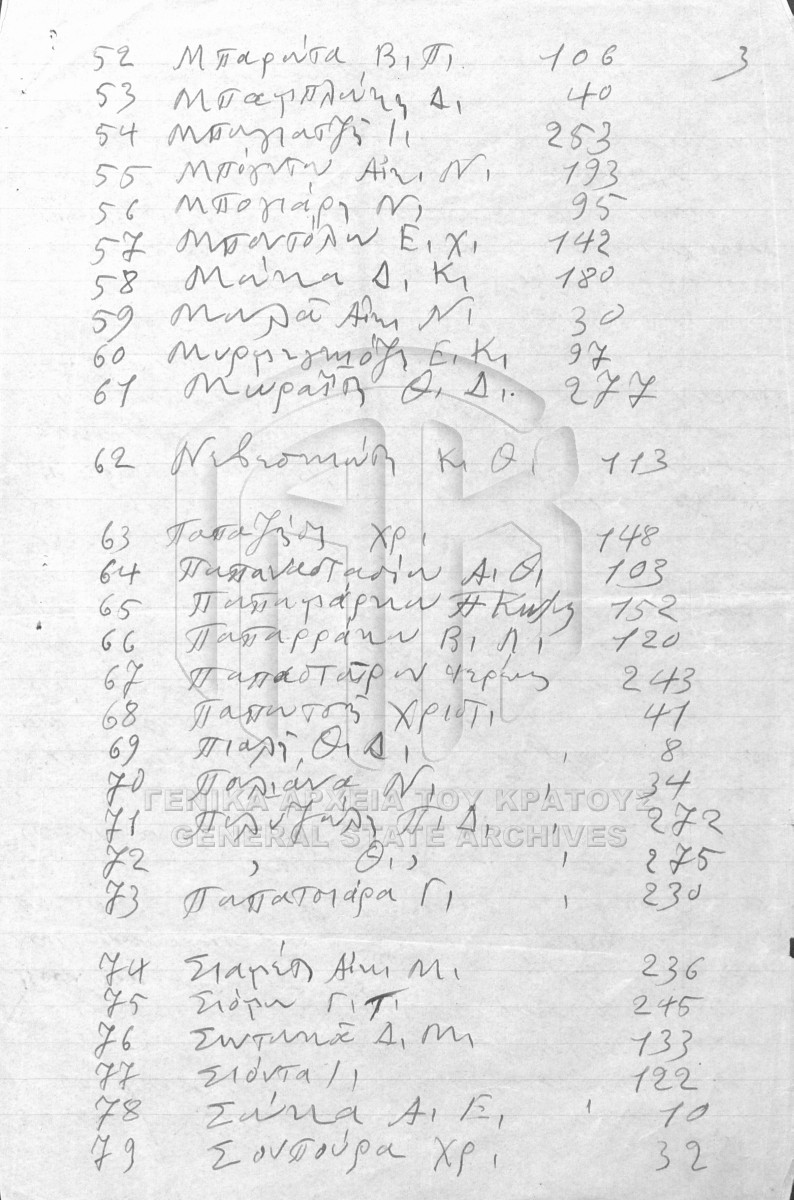 3
52 Μπαρώτα Β, Π, 106
53 Μπαμπλώκη Δ, 40
54 Μπαγιατζῆ Ι, 253
55 Μπόγντου Αἰκ, Ν, 193
56 Μπογιάρη Ν, 95
57 Μπουτόλου Ε, Χ, 142
58 Μάικα Δ, Κ, 180
59 Μαλᾶ Αἰκ, Ν, 30
60 Ε, Κ, 97
61 Μωραΐτη Θ, Δ, 277
62 Νεβεσκιώτη Κ, Θ, 113
63 Παπαζήση Χρ, 148
64 Παπαναστασίου Α, Θ, 103
65 Παπαμάρκου Κων/ς 152
66 Παπαρράκου Β, Λ, 120
67 Παπασταύρου 243
68 Παπουτσῆ Χριστ, 41
69 Πιαλῆ, Θ, Δ, , 8
70 Πολιάνα Ν, , 34
71 Π, Δ, , 272
72 , Θ, , , 275
73 Παπατσιάρα Γ, , 230
74 Σιαμέτη Αἰκ, Μ, 236
75 Σιόμου Γ, Τ, 245
76 Σωτηικᾶ Δ, Μ, 133
77 Σιόντα Ι, 122
78 Σάικα Α, Ε, , 10
79 Σουπούρα Χρ, 32
ΓΕΝΙΚΑ ΑΡΧΕΙΑ ΤΟΥ ΚΡΑΤΟΥΣ
GENERAL STATE ARCHIVES